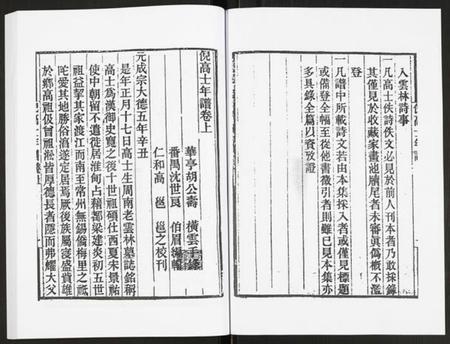 入雲林詩事
一凡高士佚詩佚文必見於前人刊本者乃敢採錄
其僅見於收藏家畫池牘尾者未審真偽槪不濫
登
一凡譜中所載詩文若由本集採入者或僅見標題
或備登全幅至從他書徵引者則雖已見本集亦
多具錄全篇以資攷證
倪高士年譜卷上
華亭胡公壽 橫雲手錄
番禺沈世良 伯眉編輯
仁和高 邕 邕之校刊
元成宗大德五年辛丑
是年正月十七日高士生周南老雲林墓誌銘稱
高士爲漢御史寬之後十世祖碩仕西夏宋景祐
使中朝留不遣徙居淮甸占籍都梁建炎初五世
祖益挈其家渡江而南至常州無錫僑梅里之祇
陀愛其地勝俗淳遂定居焉厥後族屬寖盛貲雄
於鄉高祖伋曾祖淞皆厚德長者隱而弗耀大父